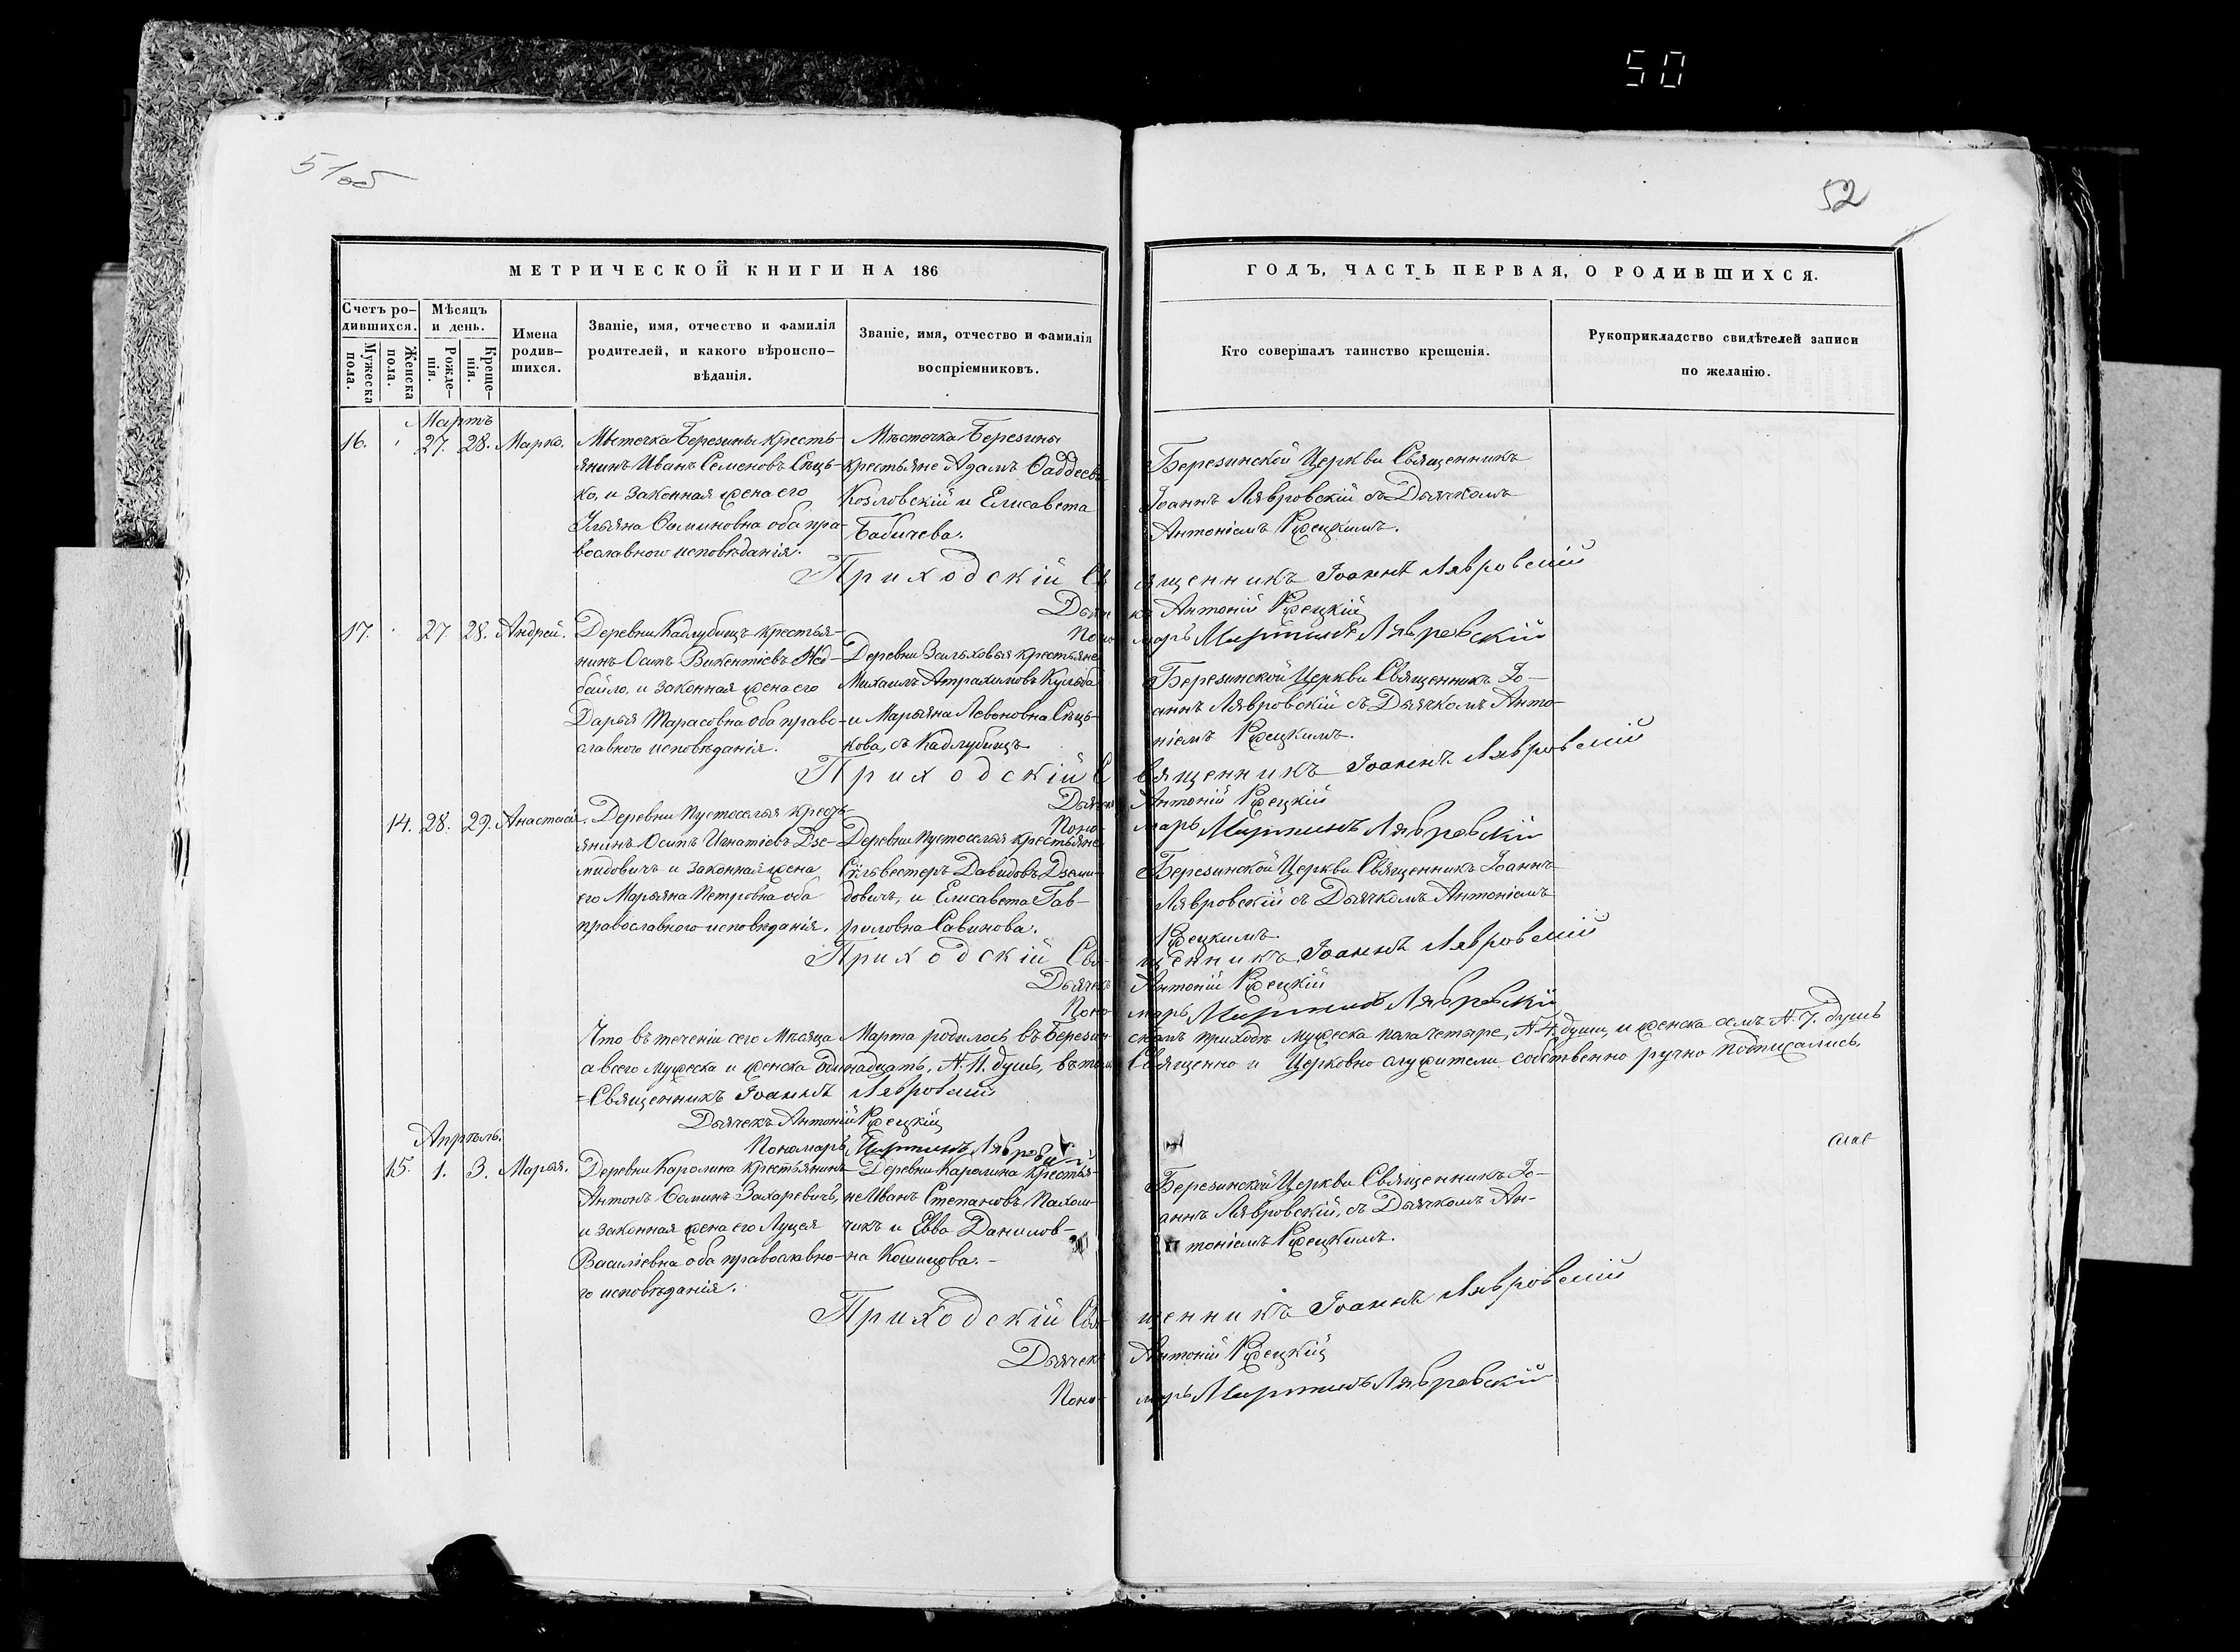 50
51 об
52
МЕТРИЧЕСКОЙ КНИГИ НА 186
ГОДЪ, ЧАСТЬ ПЕРВАЯ, О РОДИВШИХСЯ.
Счетъ ро-
дившихся.
Мужеска
пола.
Женска
пола.
Мѣсяцъ
и день.
Рожде-
нія.
Креще-
нія.
Имена
родив-
шихся.
Званіе, имя, отчество и фамилія
родителей, и какого вѣроиспо-
вѣданія.
Званіе, имя, отчество и фамилія
воспріемниковъ.
Кто совершалъ таинство крещенія.
Рукоприкладство свидѣтелей записи
по желанію.
Мартъ
16. 27. 28. Марко.
Мѣстечка Березины кресть-
янинъ Иванъ Семеновъ Сѣць-
ко, и законная жена его
Ульяна Фоминовна оба пра-
вославного исповѣданія.
Мѣстечка Березины
крестьяне Адамъ Фаддеевъ
Козловскій и Елисавета
Бабичева.
Березинской Церкви Священникъ
Іоаннъ Лявровскій съ Дьячкомъ
Антоніемъ.
Приходскій Священникъ Іоаннъ Лявровскій
Дьячекъ Антоній
Пономарь Мартинъ Лявровскій
17. 27 28. Андрей.
Деревни Кадлубищъ крестья-
нинъ Осипъ Викентіевъ
и законная жена его
Дарья Тарасовна оба право-
славного исповѣданія.
Деревни крестьяне
Михаилъ Кульба
и Марьяна Левоновна Сѣць-
кова, съ Кадлубищъ
Березинской Церкви Священникъ Іо-
аннъ Лявровскій съ Дьячкомъ Анто-
ніемъ
Приходскій Священникъ Іоаннъ Лявровскій
Дьячекъ Антоній
Пономарь Мартинъ Лявровскій
14. 28. 29. Анастасія.
Деревни Пустоселья кресть-
янинъ Осипъ Игнатіевъ Дзе-
мидовичъ и законная жена
его Марьяна Петровна оба
православного исповѣданія.
Деревни Пустоселья крестьяне
Сильвестеръ Давидовъ Дземи-
довичъ, и Елисавета Гав-
риловна Савинова.
Березинской Церкви Священникъ Іоаннъ
Лявровскій съ Дьячкомъ Антоніемъ
Приходскій Священникъ Іоаннъ Лявровскій
Дьячекъ Антоній
Пономарь Мартинъ Лявровскій
Что въ теченіи сего Мѣсяца Марта родилось въ Березинскомъ приходѣ мужеска пола четыре, N 4. души, и женска семъ N 7. душъ
а всего мужеска и женска одинадцать, N. 11. душъ, въ томъ Священно и Церковно служители собственно ручно подписались.
Священникъ Іоаннъ Лявровскій
Дьячекъ Антоній
Пономарь Мартинъ Лявровскій
Апрѣль.
15. 1. 3. Марья.
Деревни Каролина крестьянинъ
Антонъ Фоминъ Захаревичъ,
и законная жена его Луцея
Василіевна оба православно-
го исповѣданія.
Деревни Каролина крестья-
не Иванъ Степановъ Пахом-
чикъ и Евва Данилов-
на
Березинской Церкви Священникъ Іо-
аннъ Лявровскій, съ Дьячкомъ Ан-
тоніемъ
Приходскій Священникъ Іоаннъ Лявровскій
Дьячекъ Антоній
Пономарь Мартинъ Лявровскій